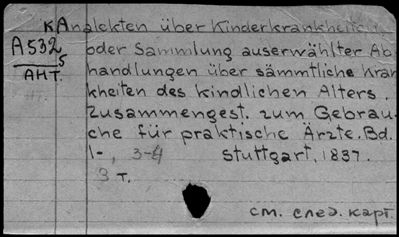 кAnalekten über Kinderkrankheiten
A532
5
АНТ.
oder Sammlung auserwählter Ab
handlungen über sämmtliche Kran
kheiten des kindlichen Alters.
Zusammengest. zum Gebrau-
che für praktische Ärzte. Bd.
1-, 3-4 Stuttgart, 1837.
3 т.
см. след. карт.